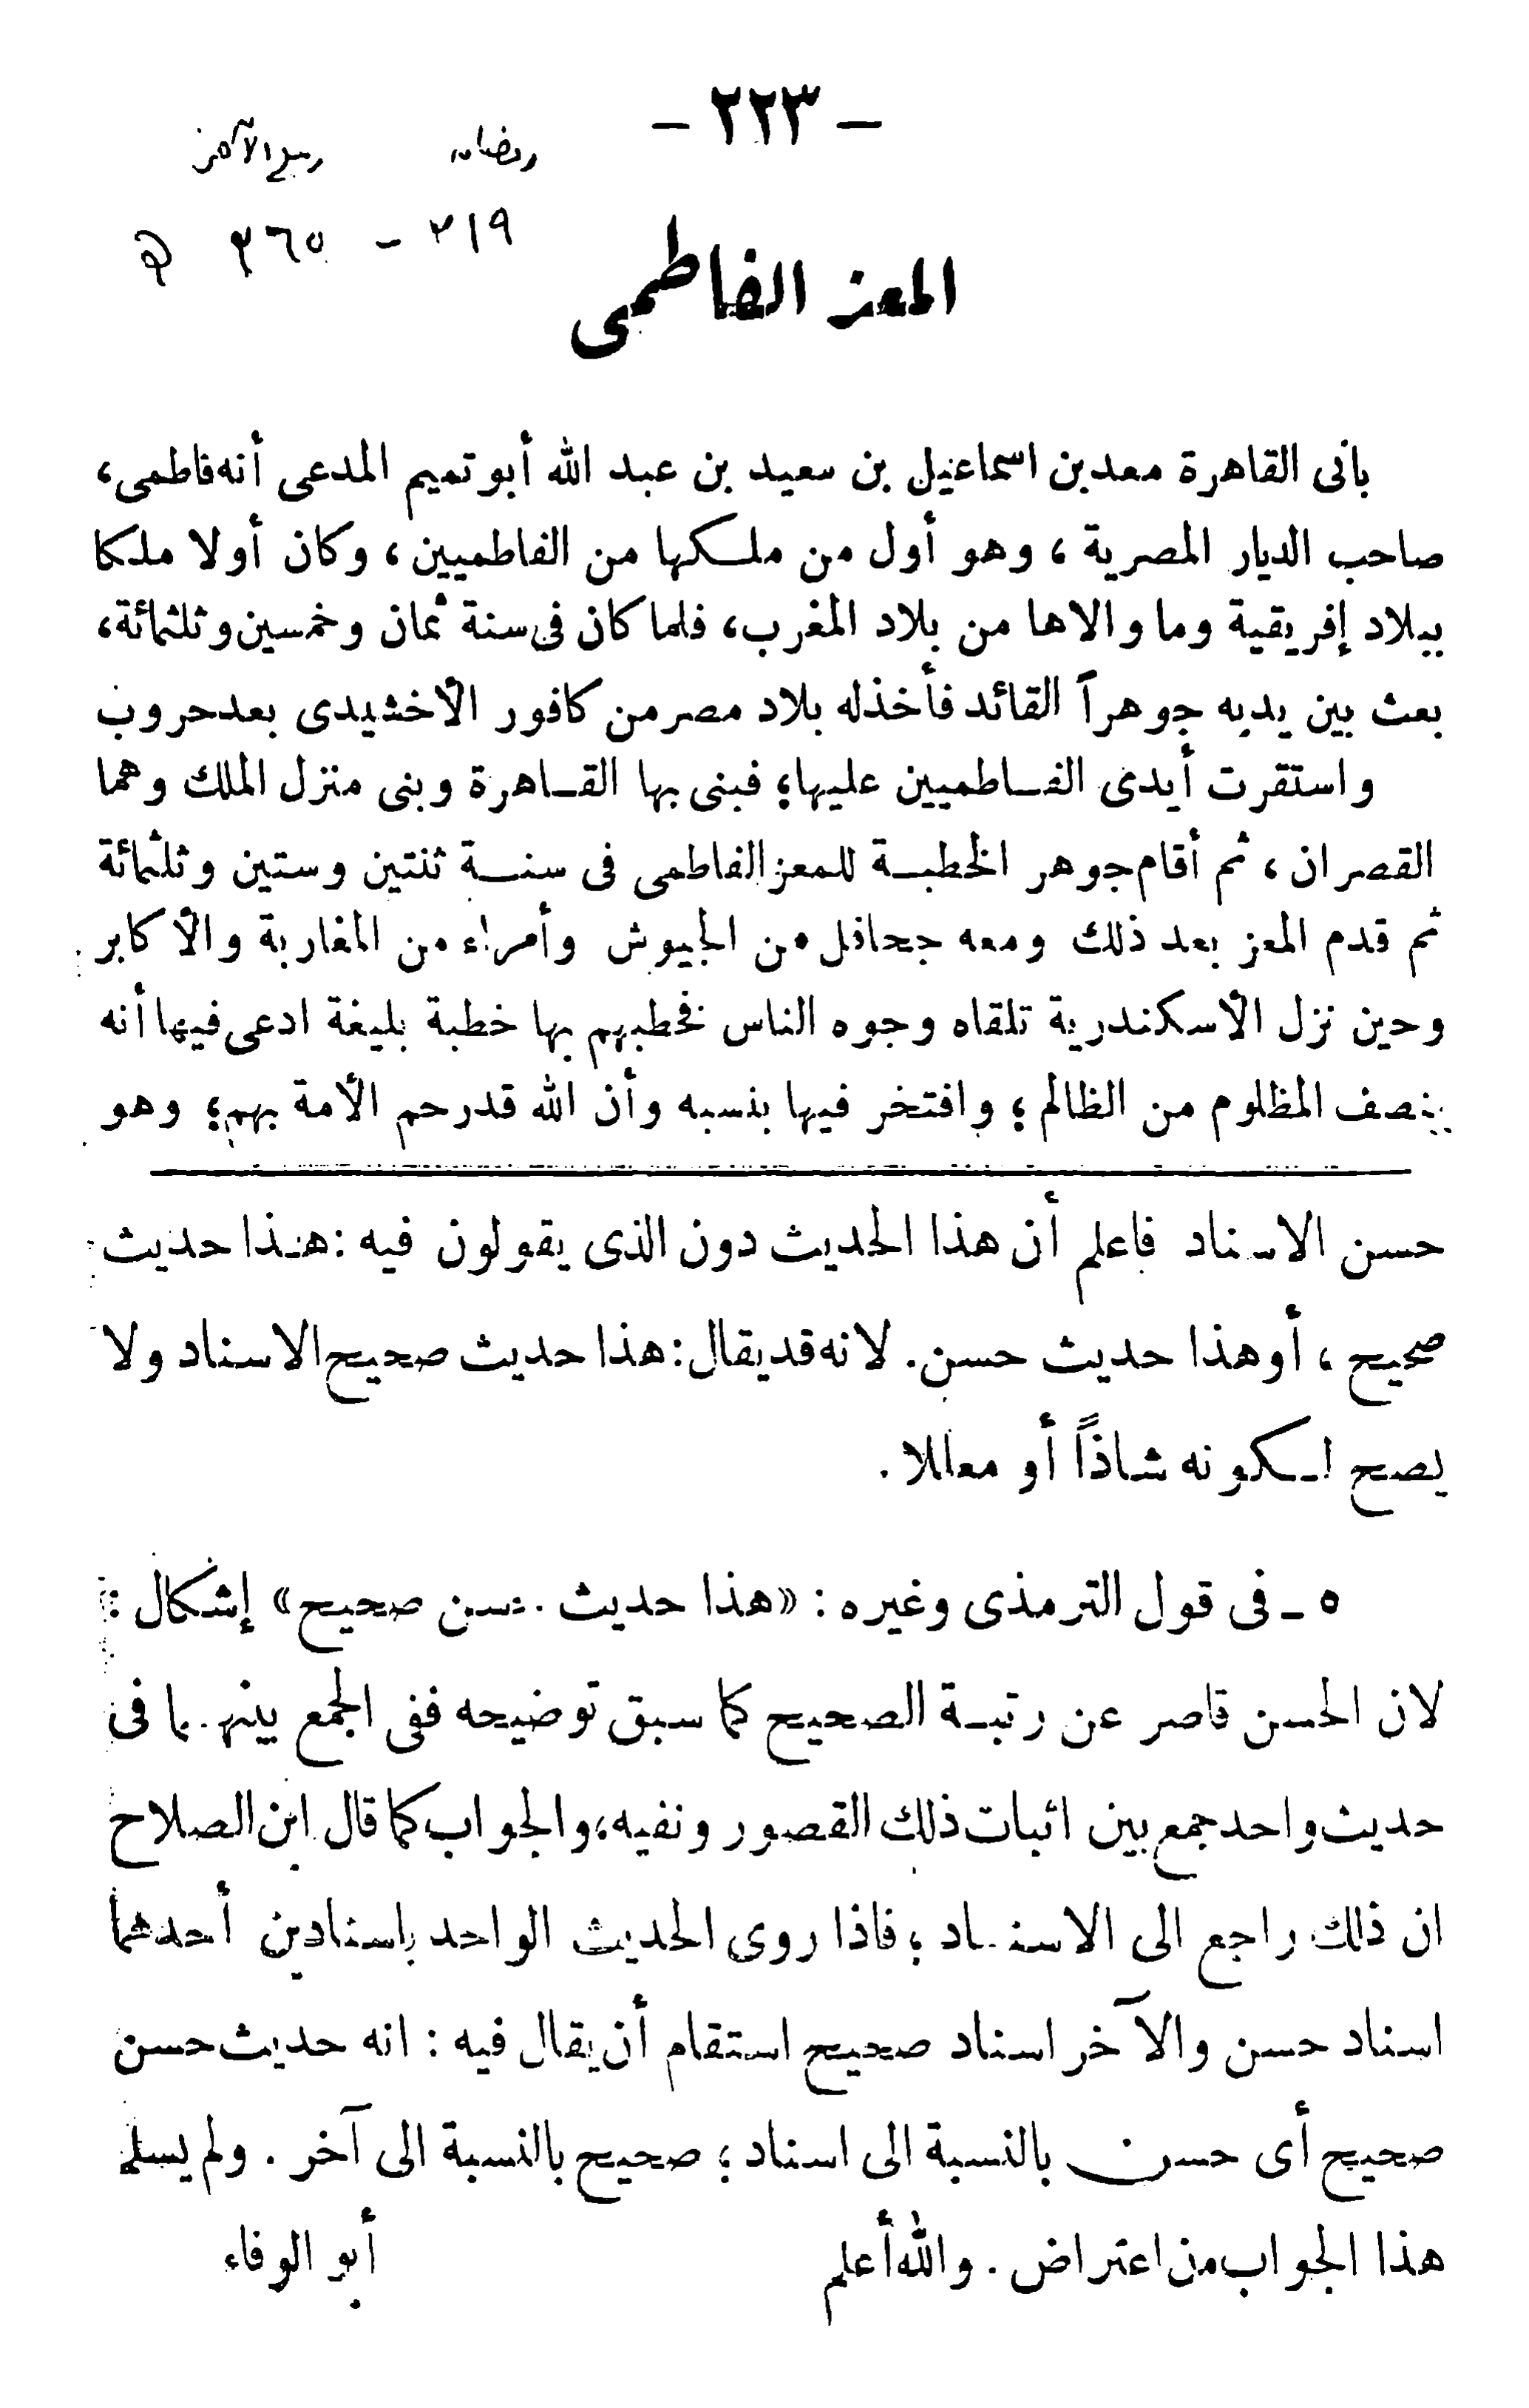 - ٢٢٣ -
رمضان ربيع الآخر
٣١٩ - ٣٦٥ هـ
المعز الفاطمى
بانى القاهرة معد بن اسماعيل بن سعيد بن عبد الله أبو تميم المدعى أنه فاطمى،
صاحب الديار المصرية ، وهو أول من ملكها من الفاطميين ، وكان أولا ملكا
ببلاد إفريقية وما والاها من بلاد المغرب، فلما كان فى سنة ثمان وخمسين وثلثمائة،
بعث بين يديه جوهراً القائد فأخذ له بلاد مصر من كافور الأخشيدى بعد حروب
واستقرت أيدى الفاطميين عليها؛ فبنى بها القاهرة وبنى منزل الملك وهما
القصران ، ثم أقام جوهر الخطبة للمعز الفاطمى فى سنة ثنتين وستين وثلثمائة
ثم قدم المعز بعد ذلك ومعه جحافل من الجيوش وأمراء من المغاربة والأكابر
وحين نزل الأسكندرية تلقاه وجوه الناس فخطبهم بها خطبة بليغة ادعى فيها أنه
ينصف المظلوم من الظالم ؛ وافتخر فيها بنسبه وأن الله قد رحم الأمة بهم؛ وهو
حسن الاسناد فاعلم أن هذا الحديث دون الذى يقولون فيه : هذا حديث
صحيح ، أو هذا حديث حسن. لانه قد يقال : هذا حديث صحيح الاسناد ولا
يصح لكونه شاذاً أو معللا .
٥ - فى قول الترمذى وغيره : «هذا حديث حسن صحيح» إشكال :
لان الحسن قاصر عن رتبة الصحيح كما سبق توضيحه ففى الجمع بينهما فى
حديث واحد جمع بين اثبات ذلك القصور ونفيه، والجواب كما قال ابن الصلاح
ان ذلك راجع الى الاسناد ؛ فاذا روى الحديث الواحد باسنادين أحدهما
اسناد حسن والآخر اسناد صحيح استقام أن يقال فيه : انه حديث حسن
صحيح أى حسن بالنسبة الى اسناد ؛ صحيح بالنسبة الى آخر . ولم يسلم
هذا الجواب من اعتراض . والله أعلم أبو الوفاء